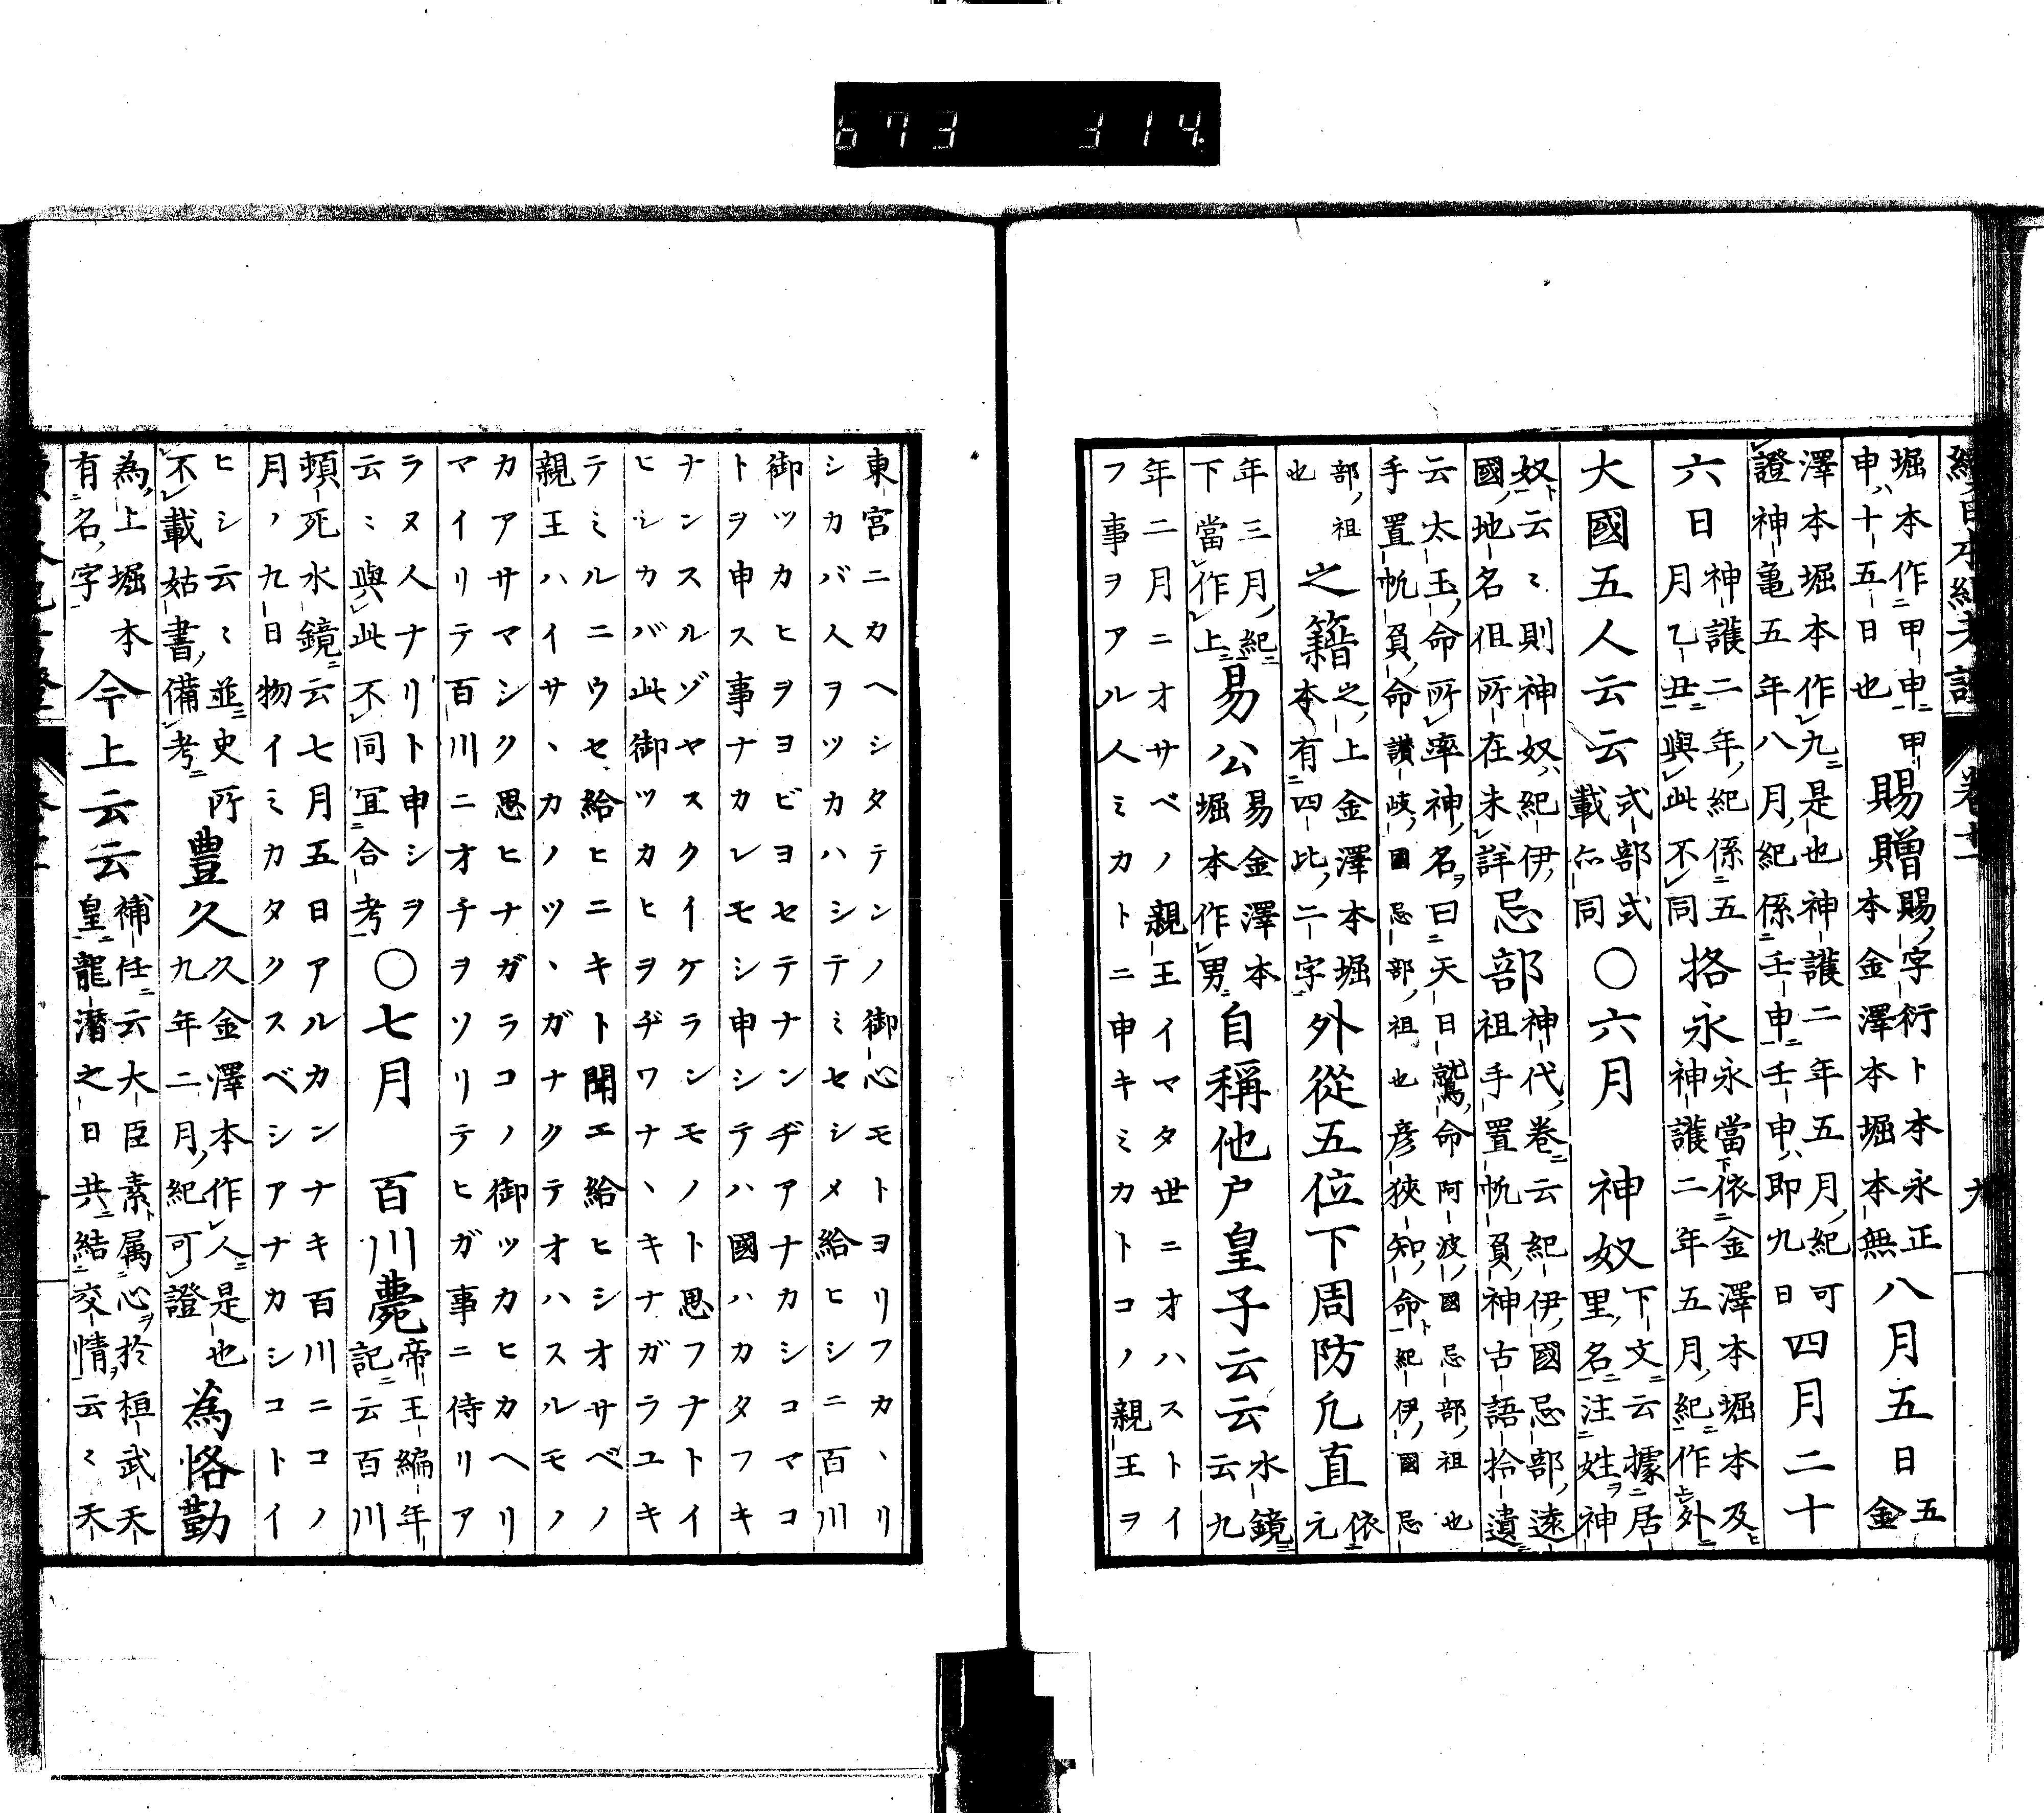 673 314
續日本紀考證 卷十一 九
堀本作甲申甲申ハ十五日也 賜贈 賜字衍卜本永正本金澤本堀本無 八月五日 五金
澤本堀本作九是也神護二年五月紀可證神亀五年八月紀係壬申壬申ハ即九日 四月二十
六日 神護二年紀係五月乙丑與此不同 挌永 永當依金澤本堀本及神護二年五月紀作外
大國五人云云 式部式載亦同 ○六月 神奴 下文云據居里名注姓神
奴云〻則神奴紀伊國地名但所在未詳 忌部 神代卷云紀伊國忌部遠祖手置帆負神古語拾遺
云太玉命所率神名曰天日鷲命阿波國忌部祖也手置帆負命讃岐國忌部祖也彦狹知命紀伊國忌
部祖也 之籍 之上金澤本堀本有四比二字 外從五位下周防凢直 依元
年三月紀下當作上 易公 易金澤本堀本作男 自稱他户皇子云云 水鏡云九
年二月ニオサベノ親王イマタ世ニオハストイ
フ事ヲアル人ミカトニ申キミカトコノ親王ヲ
東宮ニカヘシタテンノ御心モトヨリフカヽリ
シカバ人ヲツカハシテミセシメ給ヒシニ百川
御ツカヒヲヨビヨセテナンヂアナカシコマコ
トヲ申ス事ナカレモシ申シテハ國ハカタフキ
ナンスルゾヤスクイケランモノト思フナトイ
ヒシカバ此御ツカヒヲヂワナヽキナガラユキ
テミルニウセ給ヒニキト聞エ給ヒシオサベノ
親王ハイサヽカノツヽガナクテオハスルモノ
カアサマシク思ヒナガラコノ御ツカヒカヘリ
マイリテ百川ニオチヲソリテヒガ事ニ侍リア
ラヌ人ナリト申シヲ云〻與此不同冝合考 ○七月 百川薨 帝王編年記云百川
頓死水鏡云七月五日アルカンナキ百川ニコノ
月ノ九日物イミカタクスベシアナカシコトイ
ヒシ云〻並史所不載姑書備考 豊久 久金澤本作人是也九年二月紀可證 為恪勤
為上堀本有名字 今上云云 補任云大臣素属心於桓武天皇龍潜之日共結交情云〻天